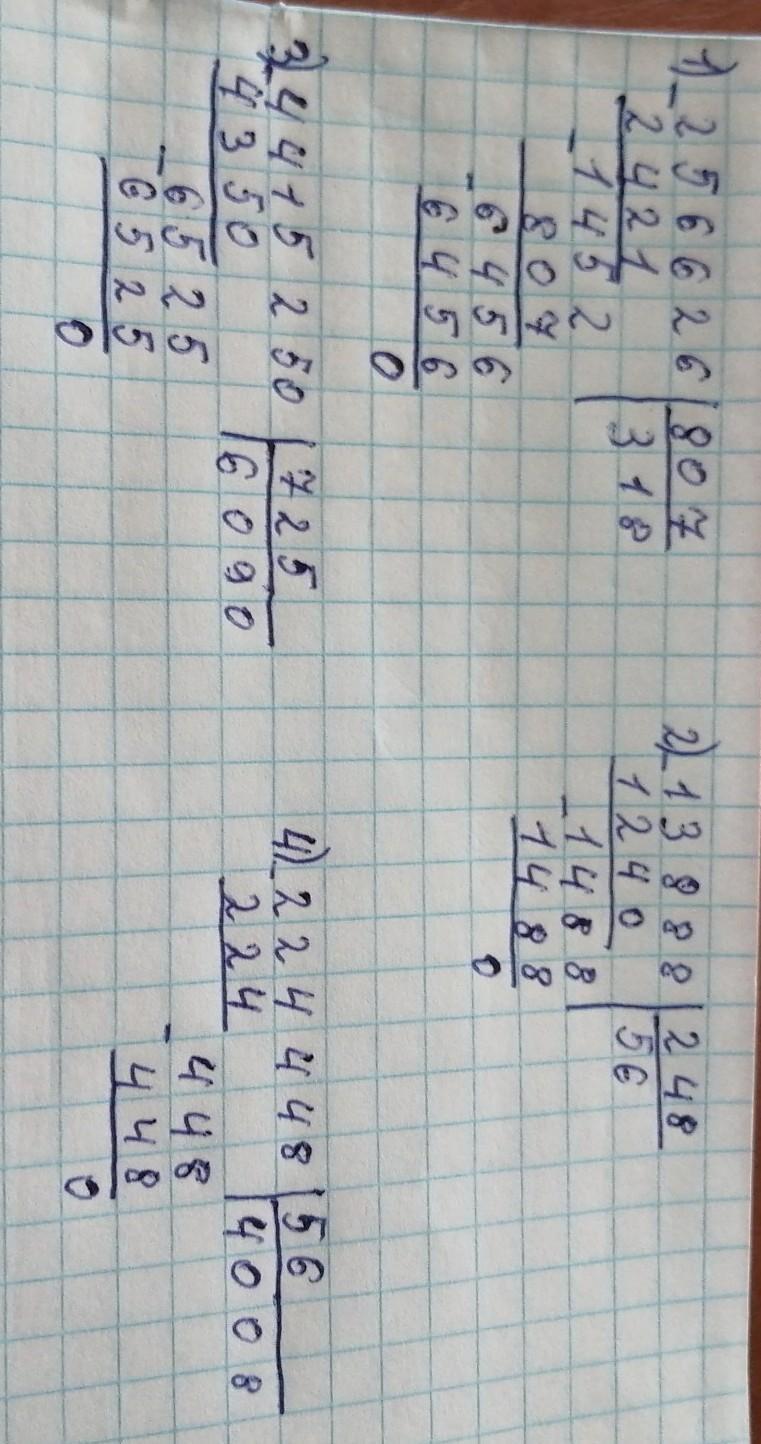 1) - 2 5 6 6 2 6 | 8 0 7
2 4 2 1 | 3 1 8
- 1 4 5 2
8 0 7
- 6 4 5 6
6 4 5 6
0
2) - 1 3 8 8 8 | 2 4 8
1 2 4 0 | 5 6
- 1 4 8 8
1 4 8 8
0
3) - 4 4 1 5 2 5 0 | 7 2 5
4 3 5 0 | 6 0 9 0
- 6 5 2 5
6 5 2 5
0
4) - 2 2 4 4 4 8 | 5 6
2 2 4 | 4 0 0 8
- 4 4 8
4 4 8
0